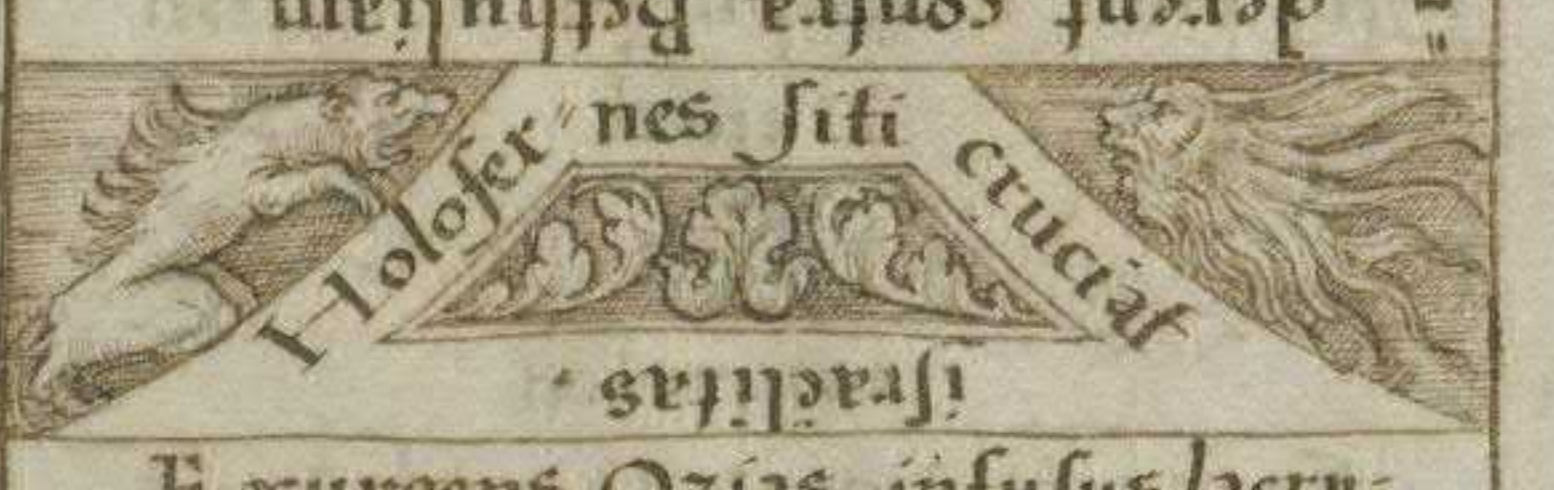 derent contra Bethuliam
Holofer=
nes ſiti
cruciat
iſraelitas.
Exurgens Ozias infuſus lacry=